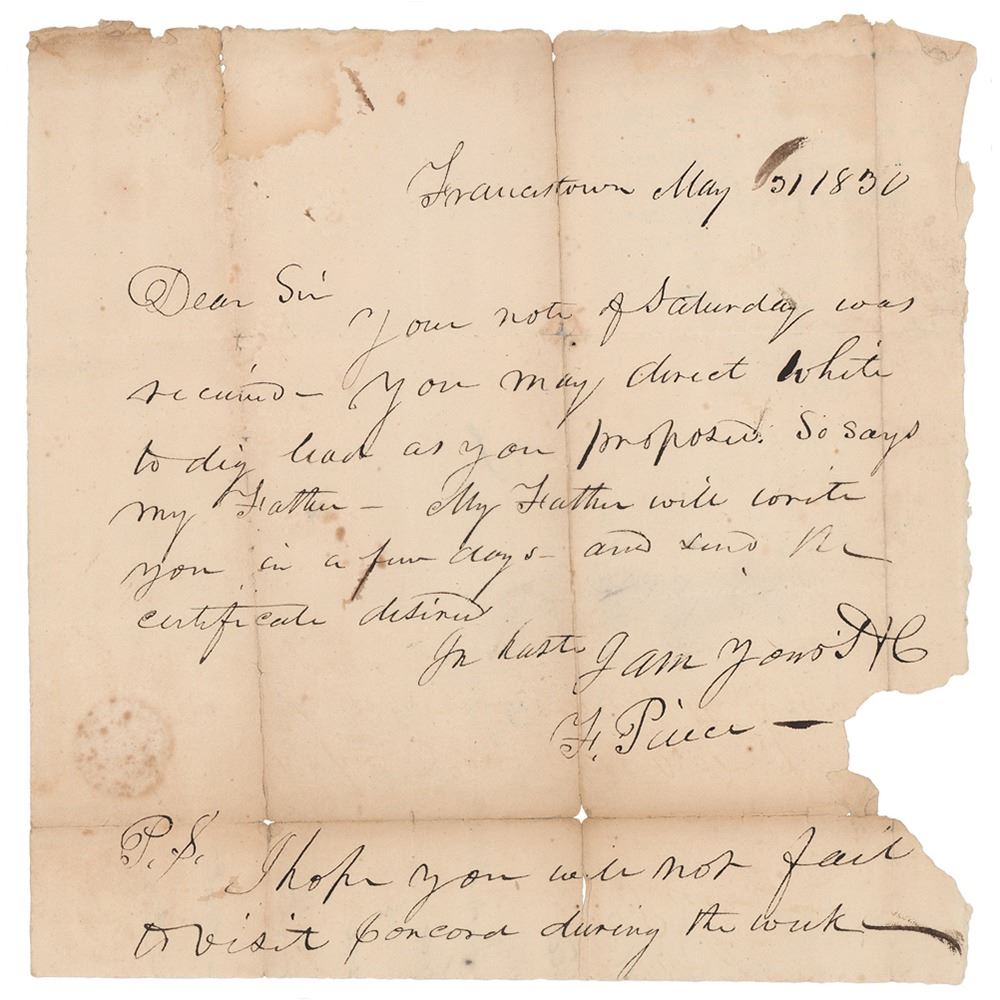 Francistown May 31 1830
Dear Sir
Your note of Saturday was
received – You may direct White
to dig lead as you proposed. So says
my Father – My Father will write
you in a few days – and send the
certificate desired
In haste I am Yours &C
F. Pierce –
P.S. I hope you will not fail
to visit Concord during the week –